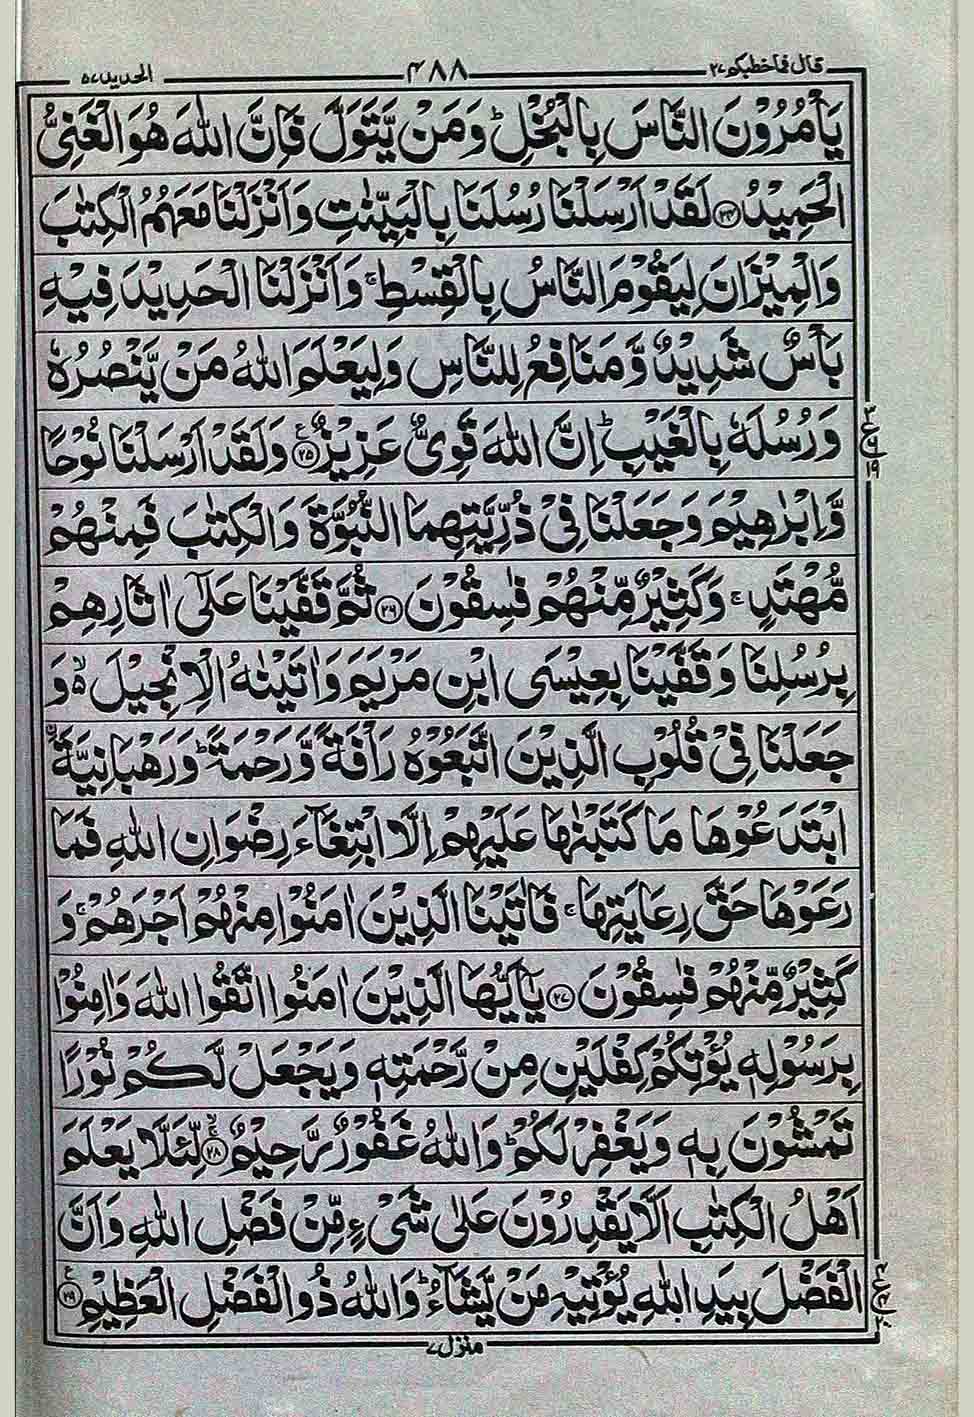 قال فما خطبكم ۲۷ ۴۸۸ الحدید ۵۷
یَاۡمُرُوۡنَ النَّاسَ بِالۡبُخۡلِ ؕ وَمَنۡ یَّتَوَلَّ فَاِنَّ اللّٰهَ هُوَ الۡغَنِیُّ
الۡحَمِیۡدُ ﴿۲۴﴾ لَقَدۡ اَرۡسَلۡنَا رُسُلَنَا بِالۡبَیِّنٰتِ وَاَنۡزَلۡنَا مَعَهُمُ الۡکِتٰبَ
وَالۡمِیۡزَانَ لِیَقُوۡمَ النَّاسُ بِالۡقِسۡطِ ۚ وَاَنۡزَلۡنَا الۡحَدِیۡدَ فِیۡهِ
بَاۡسٌ شَدِیۡدٌ وَّمَنَافِعُ لِلنَّاسِ وَلِیَعۡلَمَ اللّٰهُ مَنۡ یَّنۡصُرُهٗ
وَرُسُلَهٗ بِالۡغَیۡبِ ؕ اِنَّ اللّٰهَ قَوِیٌّ عَزِیۡزٌ ﴿۲۵﴾ وَلَقَدۡ اَرۡسَلۡنَا نُوۡحًا
۳ ع ۶ ۱۹
وَّاِبۡرٰهِیۡمَ وَجَعَلۡنَا فِیۡ ذُرِّیَّتِهِمَا النُّبُوَّةَ وَالۡکِتٰبَ فَمِنۡهُمۡ
مُّهۡتَدٍ ۚ وَکَثِیۡرٌ مِّنۡهُمۡ فٰسِقُوۡنَ ﴿۲۶﴾ ثُمَّ قَفَّیۡنَا عَلٰۤی اٰثَارِهِمۡ
بِرُسُلِنَا وَقَفَّیۡنَا بِعِیۡسَی ابۡنِ مَرۡیَمَ وَاٰتَیۡنٰهُ الۡاِنۡجِیۡلَ ۬ۙ وَ
جَعَلۡنَا فِیۡ قُلُوۡبِ الَّذِیۡنَ اتَّبَعُوۡهُ رَاۡفَةً وَّرَحۡمَةً ؕ وَرَهۡبَانِیَّةَ ۣ
ابۡتَدَعُوۡهَا مَا کَتَبۡنٰهَا عَلَیۡهِمۡ اِلَّا ابۡتِغَآءَ رِضۡوَانِ اللّٰهِ فَمَا
رَعَوۡهَا حَقَّ رِعَایَتِهَا ۚ فَاٰتَیۡنَا الَّذِیۡنَ اٰمَنُوۡا مِنۡهُمۡ اَجۡرَهُمۡ ۚ وَ
کَثِیۡرٌ مِّنۡهُمۡ فٰسِقُوۡنَ ﴿۲۷﴾ یٰۤاَیُّهَا الَّذِیۡنَ اٰمَنُوا اتَّقُوا اللّٰهَ وَاٰمِنُوۡا
بِرَسُوۡلِهٖ یُؤۡتِکُمۡ کِفۡلَیۡنِ مِنۡ رَّحۡمَتِهٖ وَیَجۡعَلۡ لَّکُمۡ نُوۡرًا
تَمۡشُوۡنَ بِهٖ وَیَغۡفِرۡ لَکُمۡ ؕ وَاللّٰهُ غَفُوۡرٌ رَّحِیۡمٌ ﴿۲۸﴾ ۙۚ لِّئَلَّا یَعۡلَمَ
اَهۡلُ الۡکِتٰبِ اَلَّا یَقۡدِرُوۡنَ عَلٰی شَیۡءٍ مِّنۡ فَضۡلِ اللّٰهِ وَاَنَّ
الۡفَضۡلَ بِیَدِ اللّٰهِ یُؤۡتِیۡهِ مَنۡ یَّشَآءُ ؕ وَاللّٰهُ ذُو الۡفَضۡلِ الۡعَظِیۡمِ ﴿۲۹﴾
۴ ع ۴ ۲۰
منزل ۷